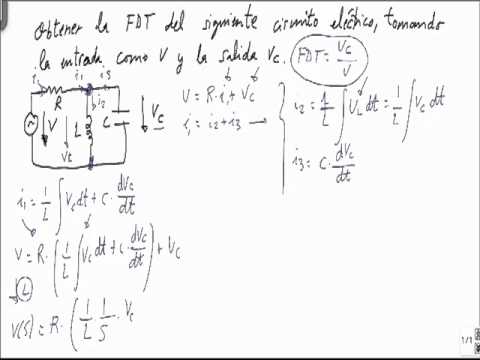 Obtener la FDT del siguiente circuito eléctrico, tomando
la entrada como V y la salida Vc. FDT = Vc/V
i i1 i3
R i2
V L C Vc
VL
V = R · i1 + Vc
i1 = i2 + i3 →
i2 = 1/L ∫ VL dt = 1/L ∫ Vc dt
i3 = C · dVc/dt
i1 = 1/L ∫ Vc dt + C · dVc/dt
V = R · (1/L ∫ Vc dt + C · dVc/dt) + Vc
L
V(S) = R · (1/L · 1/S · Vc
1/1